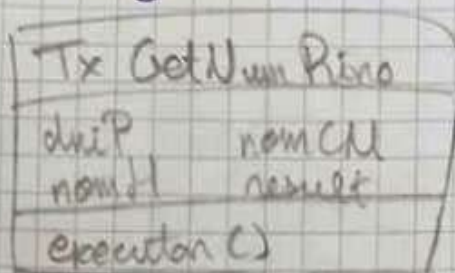 Tx GetNum Rino
dniP nomCM
nomH result
execution ()